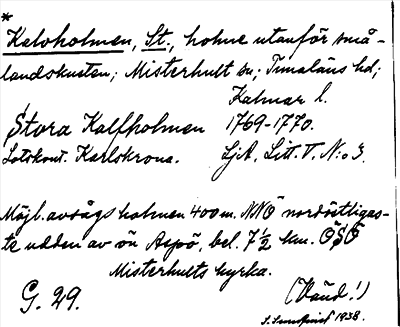 *
Kalvholmen, St., holme utanför små-
landskusten; Misterhult sn; Tunaläns hd;
Kalmar l.
Stora Kalfholmen 1769-1770.
Lotskont. Karlskrona. SjA. Litt. T. N:o 3.
Möjl. avsågs holmen 400 m. NNO nordöstligas-
te udden av ön Aspö, bel. 7 1/2 km. OSO
Misterhults kyrka.
G. 29. (Vänd!)
S. 1938.